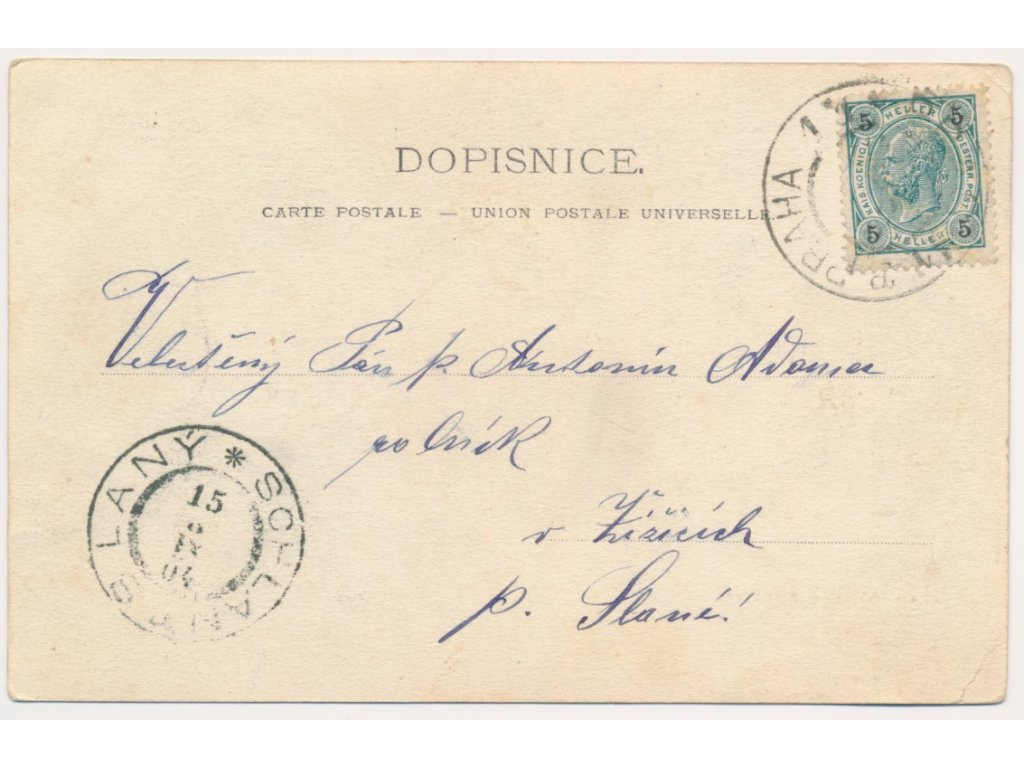 DOPISNICE.
CARTE POSTALE — UNION POSTALE UNIVERSELLE.
PRAHA 1
5 HELLER 5
KAIS. KOENIGL. OESTERR. POST
5 HELLER 5
Veluctěný Pán p Antonín Adamec
rolník
v Žižicích
p. Slané!
SLANÝ * SCHLAN *
15
04